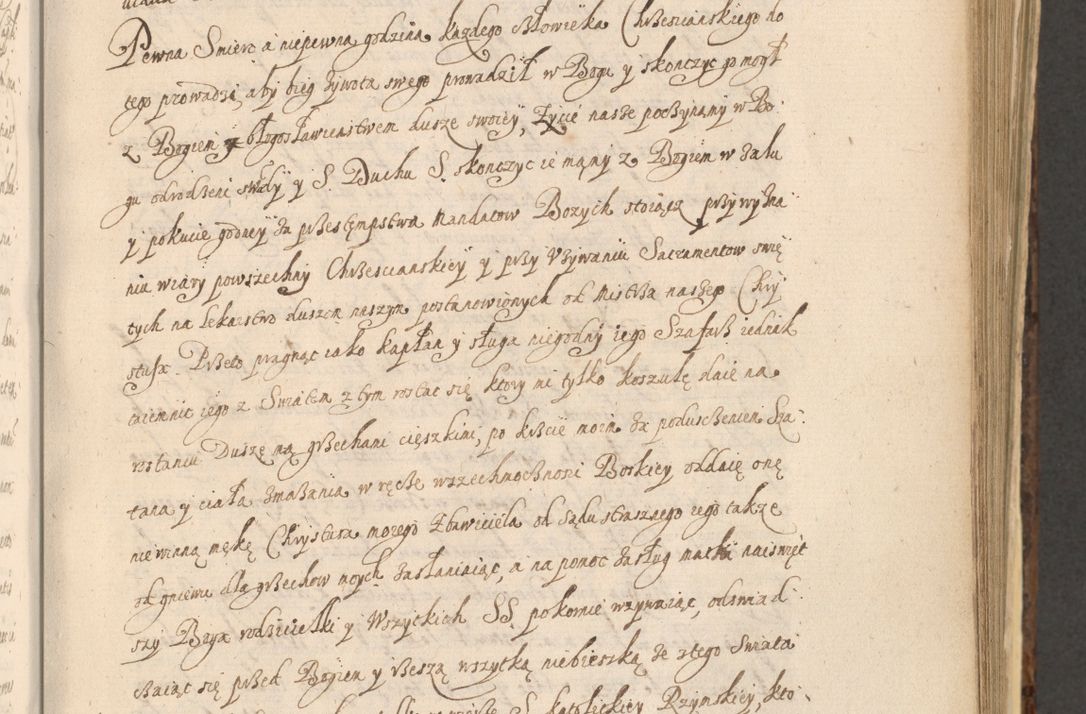 Pewna Smierc a niepewna godzina każdego człowieka Chrzescianskiego do
tego prowadzi, aby bieg żywota swego prowadził w Bogu y skonczyc go mogł
z Bogiem y błogosławienstwem dusze swoiey, Zycie nasze poczynamy w Bo
gu odrodzeni z wody y S. Duchu S. skonczyc ie mamy z Bogiem w żalu
y pokucie godney za przestempstwa mandatow Bozych stoiącz przy wyzna
niu wiary powszechny Chrzescianskiey y przy Vżywaniu Sacramentow swię
tych na lekarstwo duszom naszym postanowionych od mistrza naszego Chry
stusa. Przeto pragnąc iako kapłan y sługa niegodny iego Szafarz iednak
taiemnic iego z Swiatem z tym rostac się ktory mi tylko koszulę daie na
rostaniu Duszę mą grzechami cięszkimi, po krzcie moim za poduszczeniem Sza
tana y ciała zmazaną w ręcze wszechmocznosci Boskiey oddaię onę
niewinną mękę Chrystusa mojego Zbawiciela od sądu strasznego iego takze
od gniewu dla grzechow moych zasłaniaiąc, a na pomoc zasług matki naiswięt
szy Boga rodzicielki y Wszytkich SS pokornie wzywaiąc, oswiad
czaiąc się przed Bogiem y rzeszą wszytką niebieszką ze z tego swiata
S. katolickiey Rzymskiey, kto